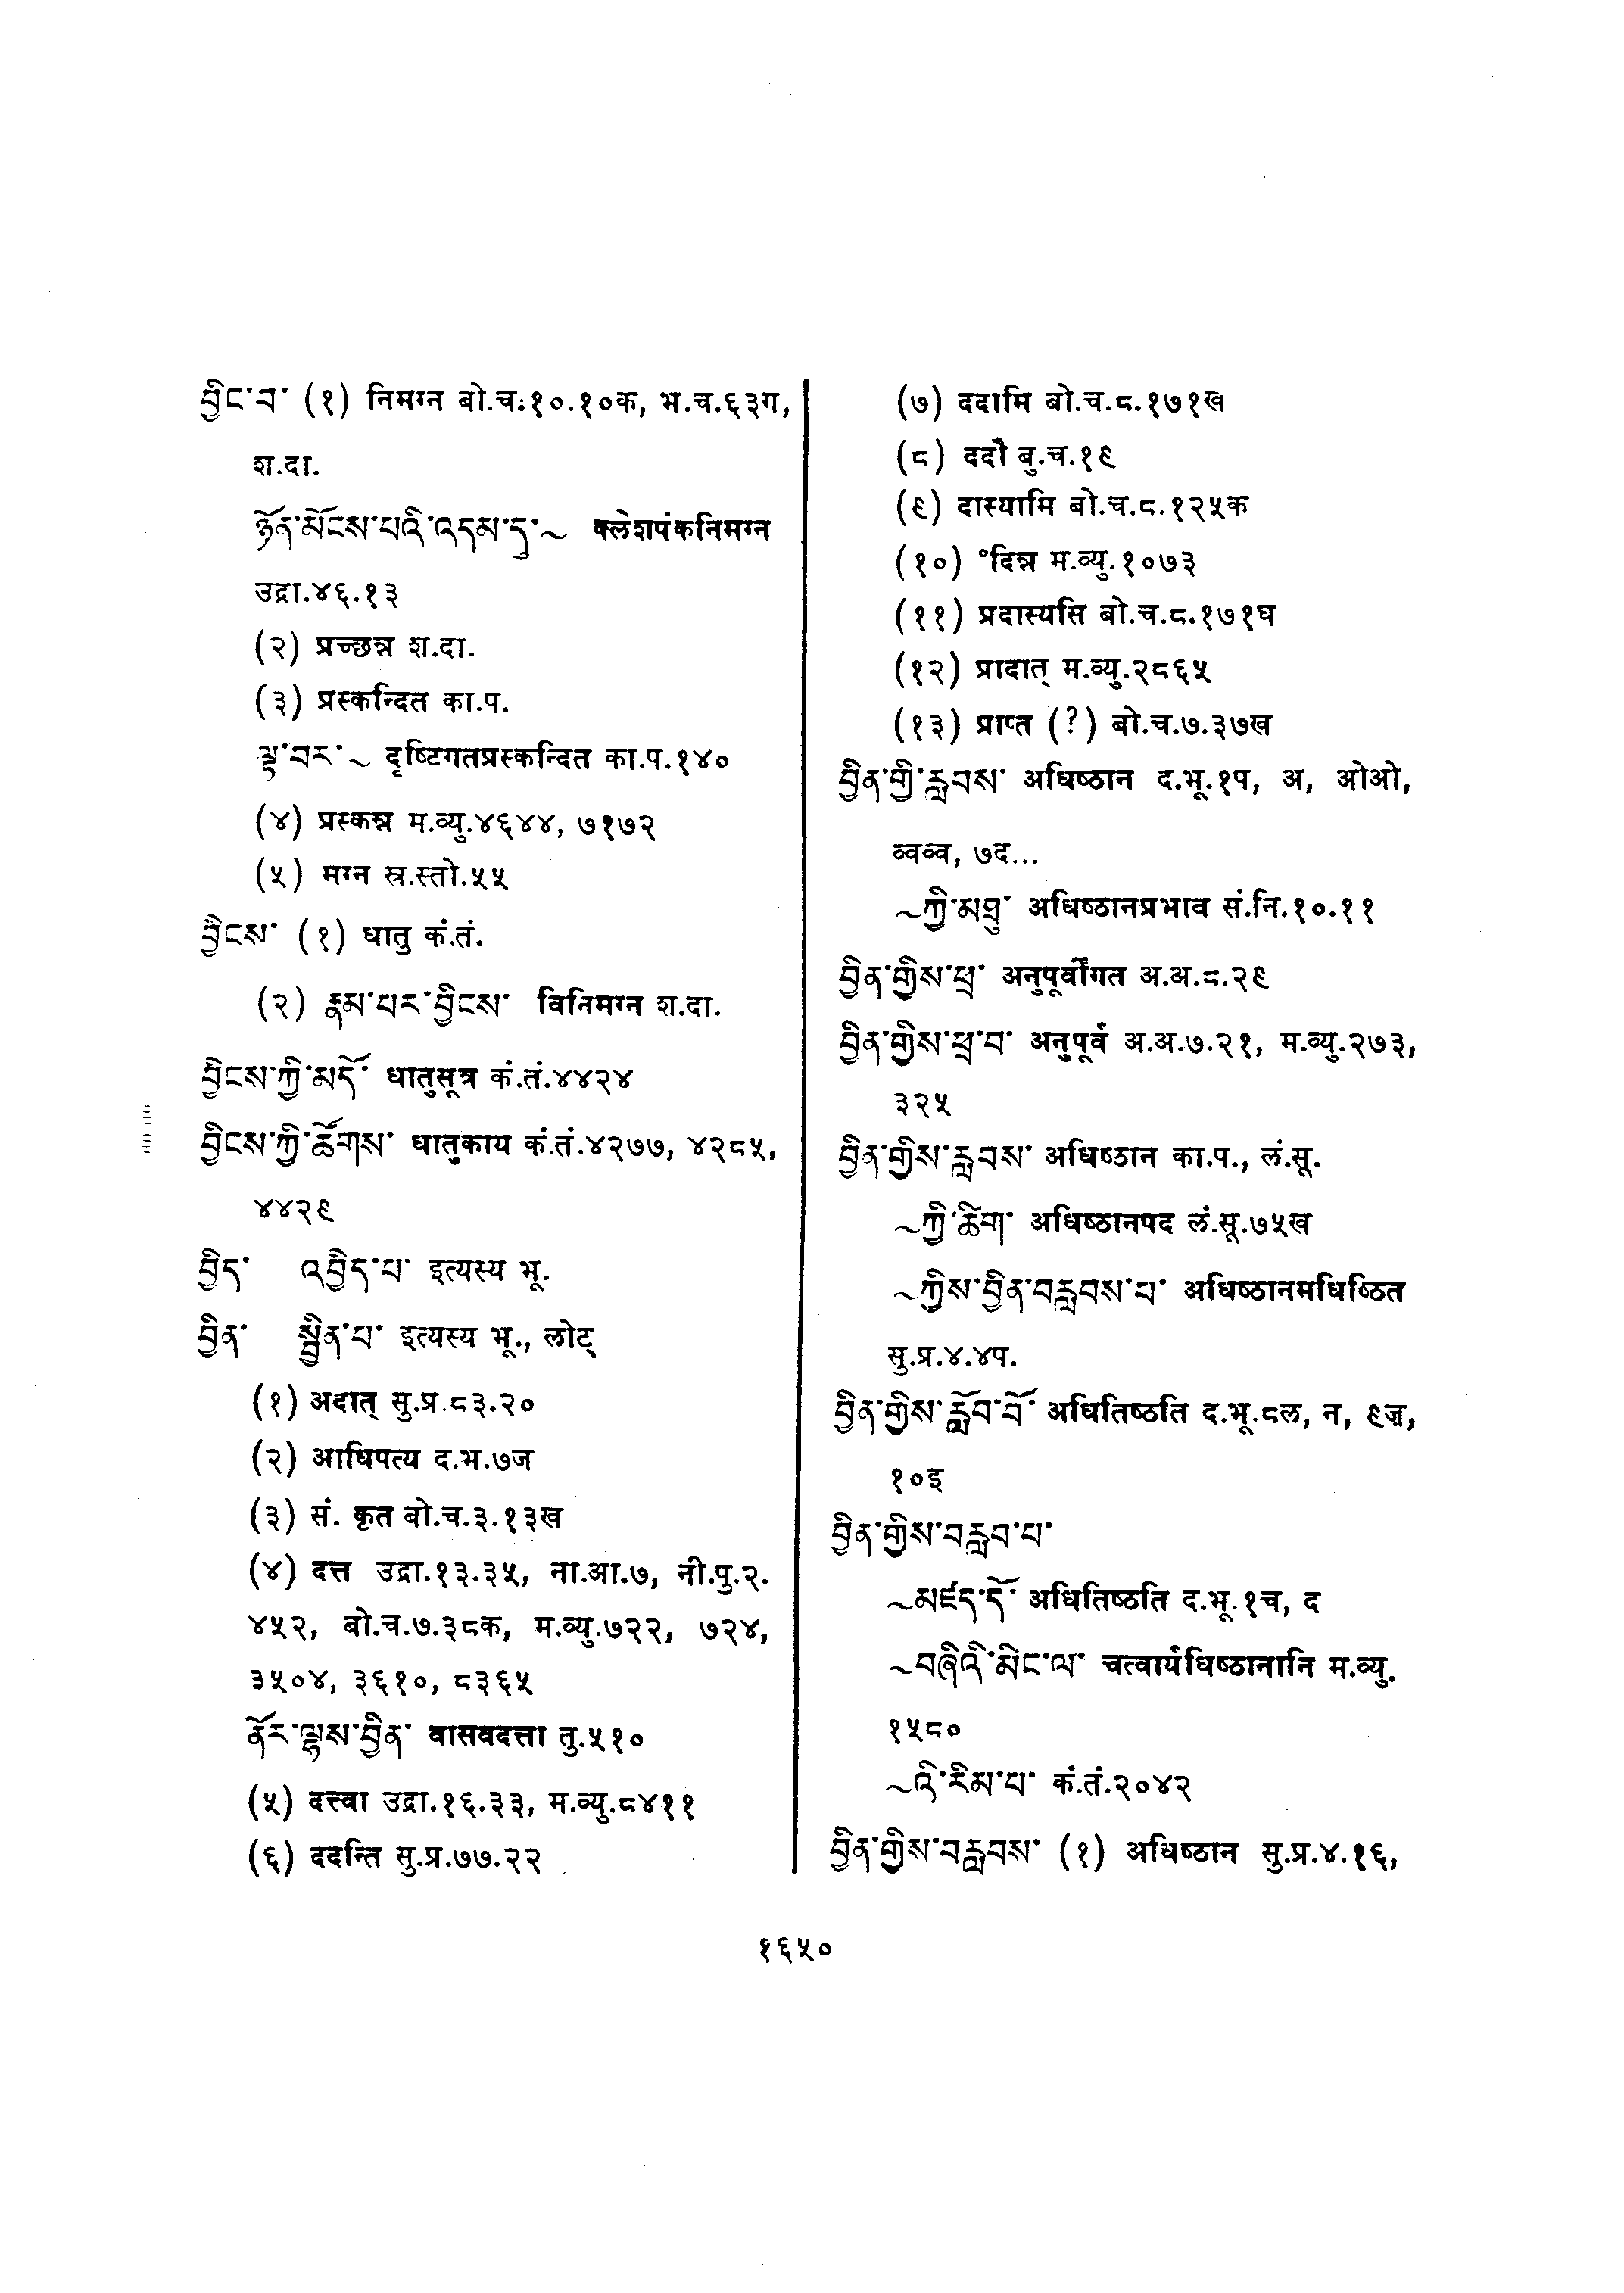 བྱིང་བ་ (१) निमग्न बो.च.१०.१०क, भ.च.६३ग,
श.दा.
ཉོན་མོངས་པའི་འདམ་དུ་~ क्लेशपंकनिमग्न
उद्रा.४६.१३
(२) प्रच्छन्न श.दा.
(३) प्रस्कन्दित का.प.
ལྟ་བར་~ दृष्टिगतप्रस्कन्दित का.प.१४०
(४) प्रस्कन्न म.व्यु.४६४४, ७१७२
(५) मग्न स्र.स्तो.५५
བྱིངས་ (१) धातु कं.तं.
(२) རྣམ་པར་བྱིངས་ विनिमग्न श.दा.
བྱིངས་ཀྱི་མདོ་ धातुसूत्र कं.तं.४४२४
བྱིངས་ཀྱི་ཚོགས་ धातुकाय कं.तं.४२७७, ४२८५,
४४२९
བྱིད་ འབྱིད་པ་ इत्यस्य भू.
བྱིན་ སྦྱིན་པ་ इत्यस्य भू., लोट्
(१) अदात् सु.प्र.८३.२०
(२) आधिपत्य द.भ.७ज
(३) सं. कृत बो.च.३.१३ख
(४) दत्त उद्रा.१३.३५, ना.आ.७, नी.पु.२.
४५२, बो.च.७.३८क, म.व्यु.७२२, ७२४,
३५०४, ३६१०, ८३६५
ནོར་ལྷས་བྱིན་ वासवदत्ता तु.५१०
(५) दत्त्वा उद्रा.१६.३३, म.व्यु.८४११
(६) ददन्ति सु.प्र.७७.२२
(७) ददामि बो.च.८.१७१ख
(८) ददौ बु.च.१९
(९) दास्यामि बो.च.८.१२५क
(१०) °दिन्न म.व्यु.१०७३
(११) प्रदास्यसि बो.च.८.१७१घ
(१२) प्रादात् म.व्यु.२८६५
(१३) प्राप्त (?) बो.च.७.३७ख
བྱིན་གྱི་རླབས་ अधिष्ठान द.भू.१प, अ, ओओ,
व्वव्व, ७द...
~ཀྱི་མཐུ་ अधिष्ठानप्रभाव सं.नि.१०.११
བྱིན་གྱིས་ཕྲ་ अनुपूर्वोगत अ.अ.८.२९
བྱིན་གྱིས་ཕྲ་བ་ अनुपूर्व अ.अ.७.२१, म.व्यु.२७३,
३२५
བྱིན་གྱིས་རླབས་ अधिष्ठान का.प., लं.सू.
~ཀྱི་ཚིག་ अधिष्ठानपद लं.सू.७५ख
~ཀྱིས་བྱིན་བརླབས་པ་ अधिष्ठानमधिष्ठित
सु.प्र.४.४प.
བྱིན་གྱིས་རློབ་བོ་ अधितिष्ठति द.भू.८ल, न, ९ज्र,
१०इ
བྱིན་གྱིས་བརླབ་པ་
~མཛད་དོ་ अधितिष्ठति द.भू.१च, द
~བཞིའི་མིང་ལ་ चत्वार्यधिष्ठानानि म.व्यु.
१५८०
~འི་རིམ་པ་ कं.तं.२०४२
བྱིན་གྱིས་བརླབས་ (१) अधिष्ठान सु.प्र.४.१६,
१६५०